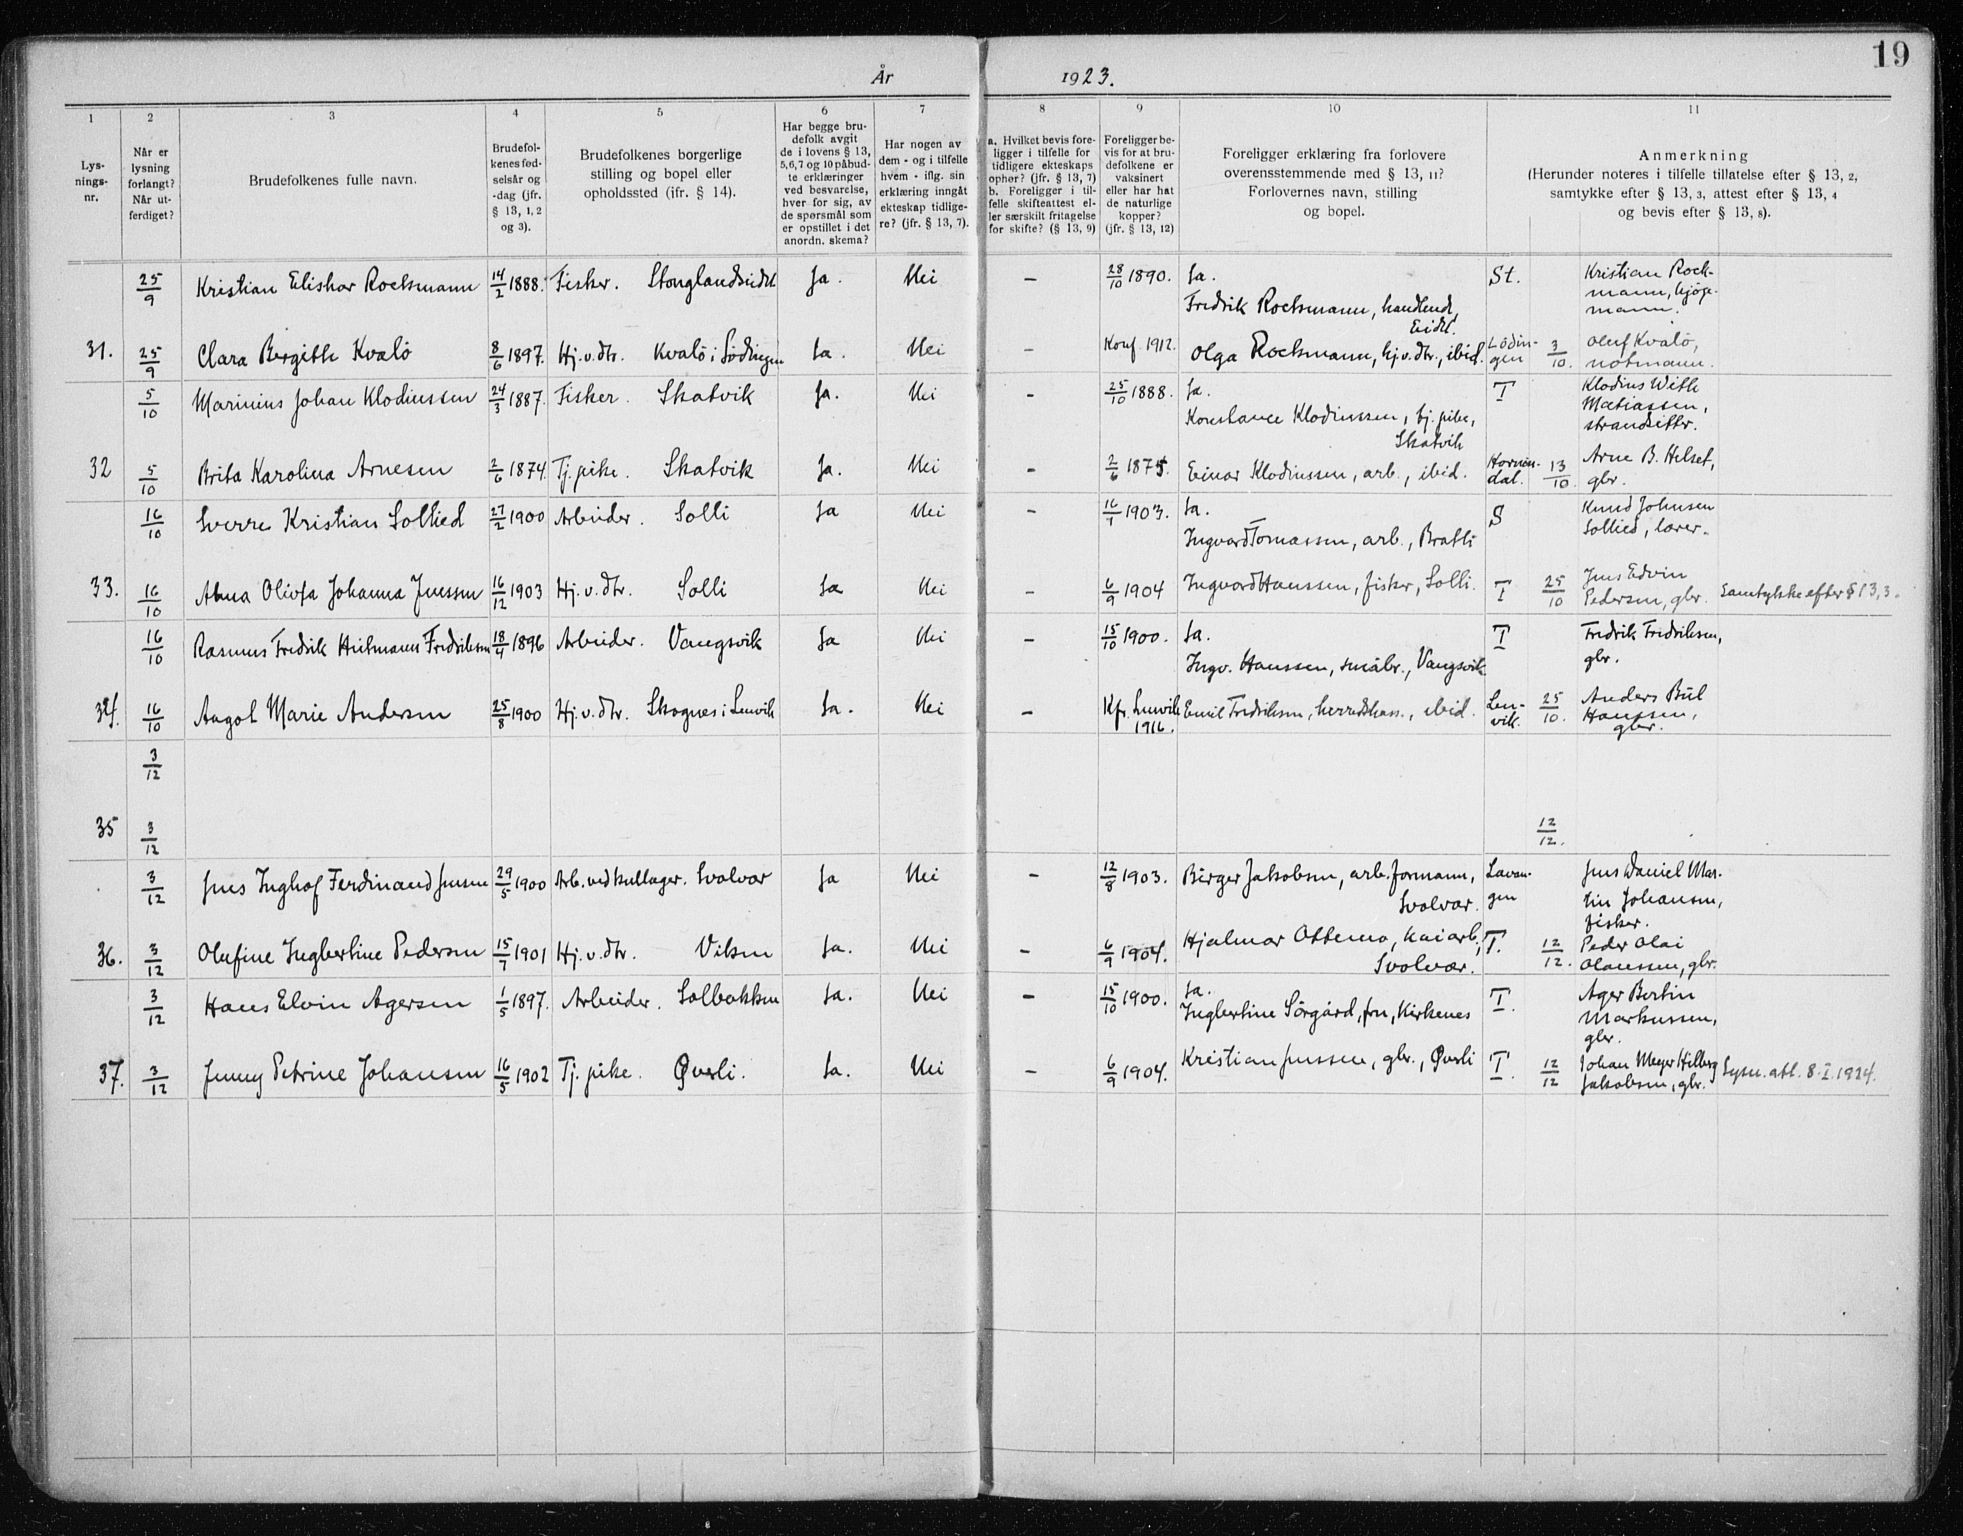 19
År 1923.
1 2 3 4 5 6 7 8 9 10 11
Lys-
nings-
nr.
Når er
lysning
forlangt?
Når ut-
ferdiget?
Brudefolkenes fulle navn.
Brudefol-
kenes fød-
selsår og
-dag (jfr.
§ 13, 1, 2
og 3).
Brudefolkenes borgerlige
stilling og bopel eller
opholdssted (jfr. § 14).
Har begge bru-
defolk avgit
de i lovens § 13,
5,6,7 og 10 påbud-
te erklæringer
ved besvarelse,
hver for sig, av
de spørsmål som
er opstillet i det
anordn. skema?
Har nogen av
dem - og i tilfelle
hvem - iflg. sin
erklæring inngått
ekteskap tidlige-
re? (jfr. § 13, 7).
a. Hvilket bevis fore-
ligger i tilfelle for
tidligere ekteskaps
ophør? (jfr. § 13, 7)
b. Foreligger i til-
felle skifteattest el-
ler særskilt fritagelse
for skifte? (§ 13, 9)
Foreligger be-
vis for at bru-
defolkene er
vaksinert
eller har hat
de naturlige
kopper?
(jfr. § 13, 12)
Foreligger erklæring fra forlovere
overensstemmende med § 13, 11?
Forlovernes navn, stilling
og bopel.
Anmerkning
(Herunder noteres i tilfelle tillatelse efter § 13, 2,
samtykke efter § 13, 3, attest efter § 13, 4
og bevis efter § 13, 8).
25/9 Kristian Elishar Rocksmann 14/2 1888. Fisker. Stonglandseidet Ja. Nei – 28/10 1890. Ja. St. Kristian Rock-
mann, kjøp-
mann.
Fredrik Rocksmann, handlende,
Eidet.
31. 25/9 Clara Bergith Kvalö 8/6 1897. Hj.v.dtr. Kvalö i Lödingen Ja. Nei – Konf. 1912. Olga Rocksmann, hj.v.dtr., ibid. Lödin-
gen 3/10. Oluf Kvalö,
notmann.
5/10 Marinius Johan Klodiussen 24/3 1887. Fisker. Skatvik Ja. Nei – 25/10 1888. Ja. T Klodius With
Matiassen,
strandsitter.
Konstance Klodiussen, tj. pike,
Skatvik
32 5/10 Brita Karolina Arnesen 2/6 1874. Tj. pike. Skatvik Ja. Nei – 2/6 1875. Einar Klodiussen, arb., ibid. Hornin-
dal. 13/10. Arne B. Helset,
gbr.
16/10 Sverre Kristian Sollied 27/2 1900 Arbeider. Solli Ja Nei – 16/9 1903. Ja. S Knud Johnsen
Sollied, lærer.
Ingvard Tomassen, arb., Bratli
33. 16/10 Alma Olivfa Johanna Jenssen 16/12 1903 Hj.v.dtr. Solli Ja Nei – 6/9 1904 Ingvard Hanssen, fisker, Solli. T 25/10 Jens Edvin
Pedersen, gbr. Samtykke efter § 13, 3.
16/10 Rasmus Fredrik Hartmann Fredriksen 18/4 1896 Arbeider. Vangsvik Ja Nei – 15/10 1900. Ja. T Fredrik Fredriksen,
gbr.
Ingv. Hanssen, småbr., Vangsvik
34. 16/10 Aagot Marie Andersen 25/8 1900 Hj.v.dtr. Skognes i Lenvik Ja. Nei – Kfr. Lenvik
1916. Emil Fredriksen, herredskass., ibid. Len-
vik. 25/10. Anders Bül
Hanssen,
gbr.
3/12
35 3/12 12/12.
3/12 Jens Inghof Ferdinand Jensen 29/5 1900 Arb. ved kullager. Svolvær Ja Nei – 12/8 1903. Birger Jakobsen, arb.formann,
Svolvær. Lavan-
gen Jens Daniel Mar-
tin Johansen,
fisker.
36. 3/12 Olufine Ingbertine Pedersen 15/7 1901 Hj.v.dtr. Viken Ja. Nei – 6/9 1904. Hjalmar Ottemo, kaiarb.,
Svolvær. T. 12/12. Peder Olai
Olaussen, gbr.
3/12 Hans Elvin Agersen 1/5 1897. Arbeider. Solbakken Ja. Nei – 15/10 1900. Ja. T. Ager Bertin
Markussen,
gbr.
Ingbertine Sörgård, fru, Kirkenes
37. 3/12 Jenny Petrine Johansen 16/5 1902 Tj. pike. Øverli. Ja. Nei – 6/9 1904. Kristian Jenssen, gbr., Øverli T. 12/12 Johan Meyer Hilberg
Jakobsen, gbr. Lysn. att. 8.I.1924.